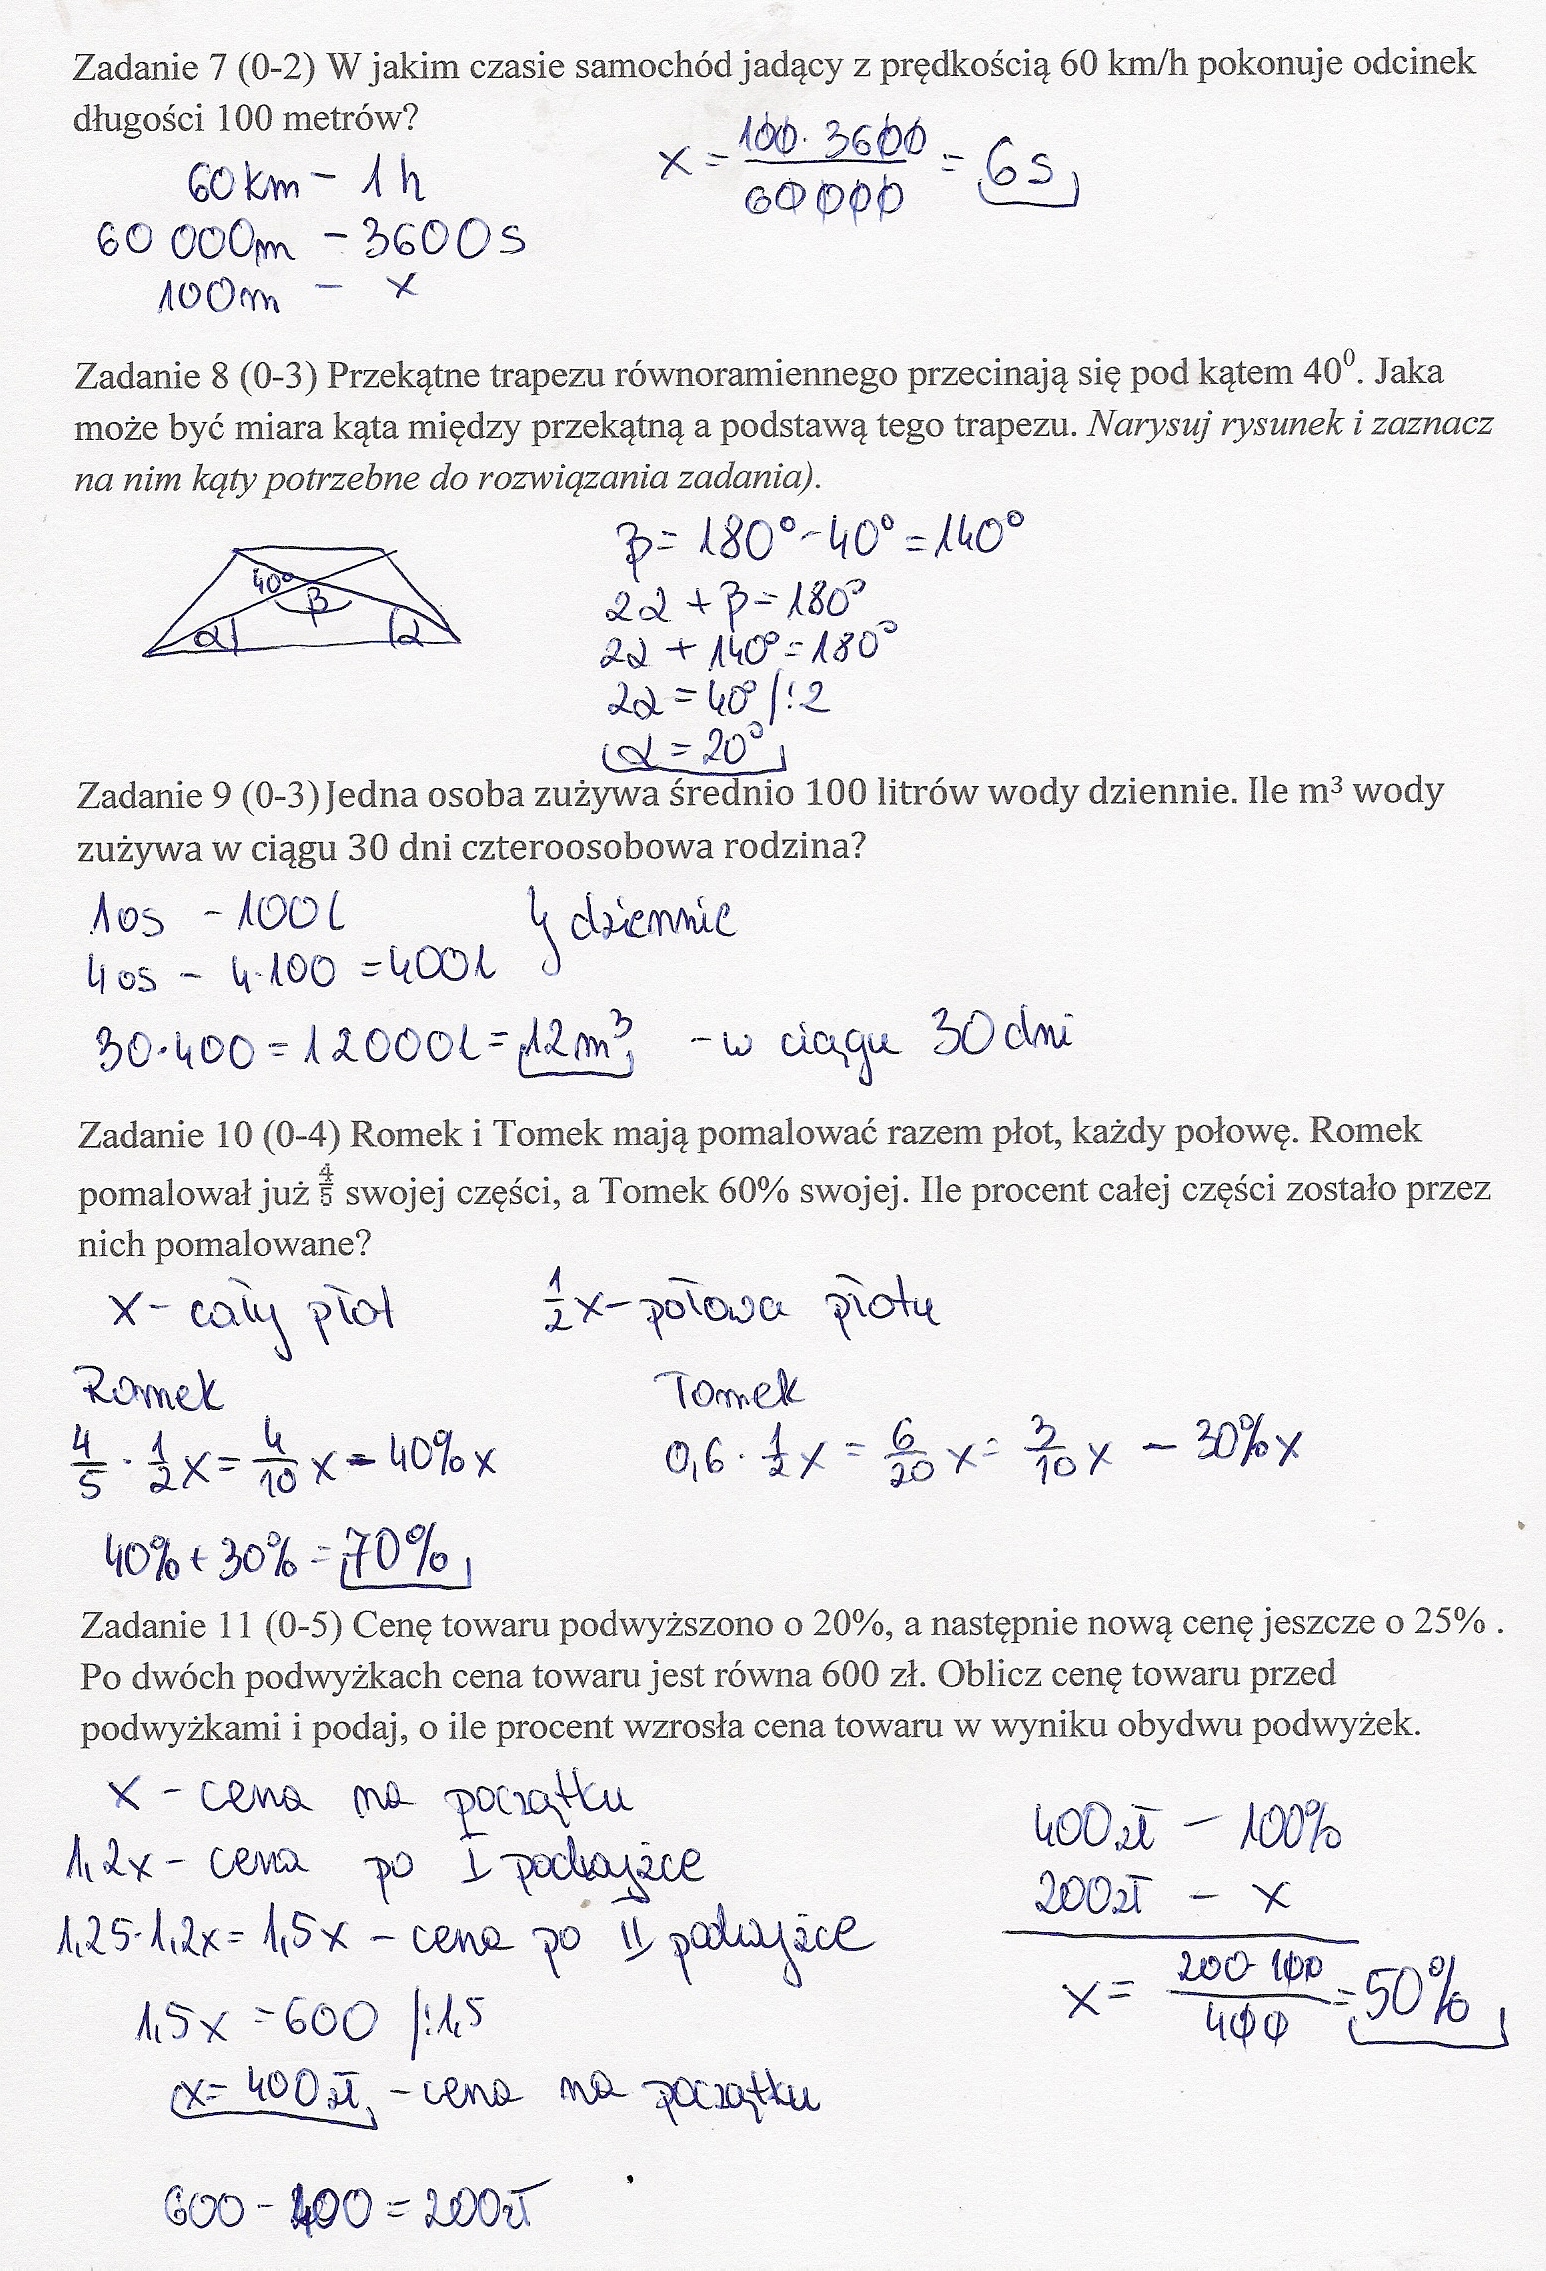 Zadanie 7 (0-2) W jakim czasie samochód jadący z prędkością 60 km/h pokonuje odcinek
długości 100 metrów?
60km - 1h
60 000m - 3600s
100m - x
x = \frac{100 · 3600}{60000} = 6s
Zadanie 8 (0-3) Przekątne trapezu równoramiennego przecinają się pod kątem 40⁰. Jaka
może być miara kąta między przekątną a podstawą tego trapezu. Narysuj rysunek i zaznacz
na nim kąty potrzebne do rozwiązania zadania).
40°
β
α α
β = 180° - 40° = 140°
2α + β = 180°
2α + 140° = 180°
2α = 40° /:2
α = 20°
Zadanie 9 (0-3) Jedna osoba zużywa średnio 100 litrów wody dziennie. Ile m³ wody
zużywa w ciągu 30 dni czteroosobowa rodzina?
1os - 100l
4os - 4·100 = 400l } dziennie
30·400 = 12000l = 12m³ - w ciągu 30 dni
Zadanie 10 (0-4) Romek i Tomek mają pomalować razem płot, każdy połowę. Romek
pomalował już 4/5 swojej części, a Tomek 60% swojej. Ile procent całej części zostało przez
nich pomalowane?
x - cały płot 1/2x - połowa płotu
Romek Tomek
4/5 · 1/2x = 4/10x = 40%x 0,6 · 1/2x = 6/20x = 3/10x - 30%x
40% + 30% = 70%
Zadanie 11 (0-5) Cenę towaru podwyższono o 20%, a następnie nową cenę jeszcze o 25% .
Po dwóch podwyżkach cena towaru jest równa 600 zł. Oblicz cenę towaru przed
podwyżkami i podaj, o ile procent wzrosła cena towaru w wyniku obydwu podwyżek.
x - cena na początku
1,2x - cena po I podwyżce
1,25·1,2x = 1,5x - cena po II podwyżce
1,5x = 600 /:1,5
x = 400zł - cena na początku
600 - 400 = 200zł
400zł - 100%
200zł - x
x = \frac{200·100}{400} = 50%